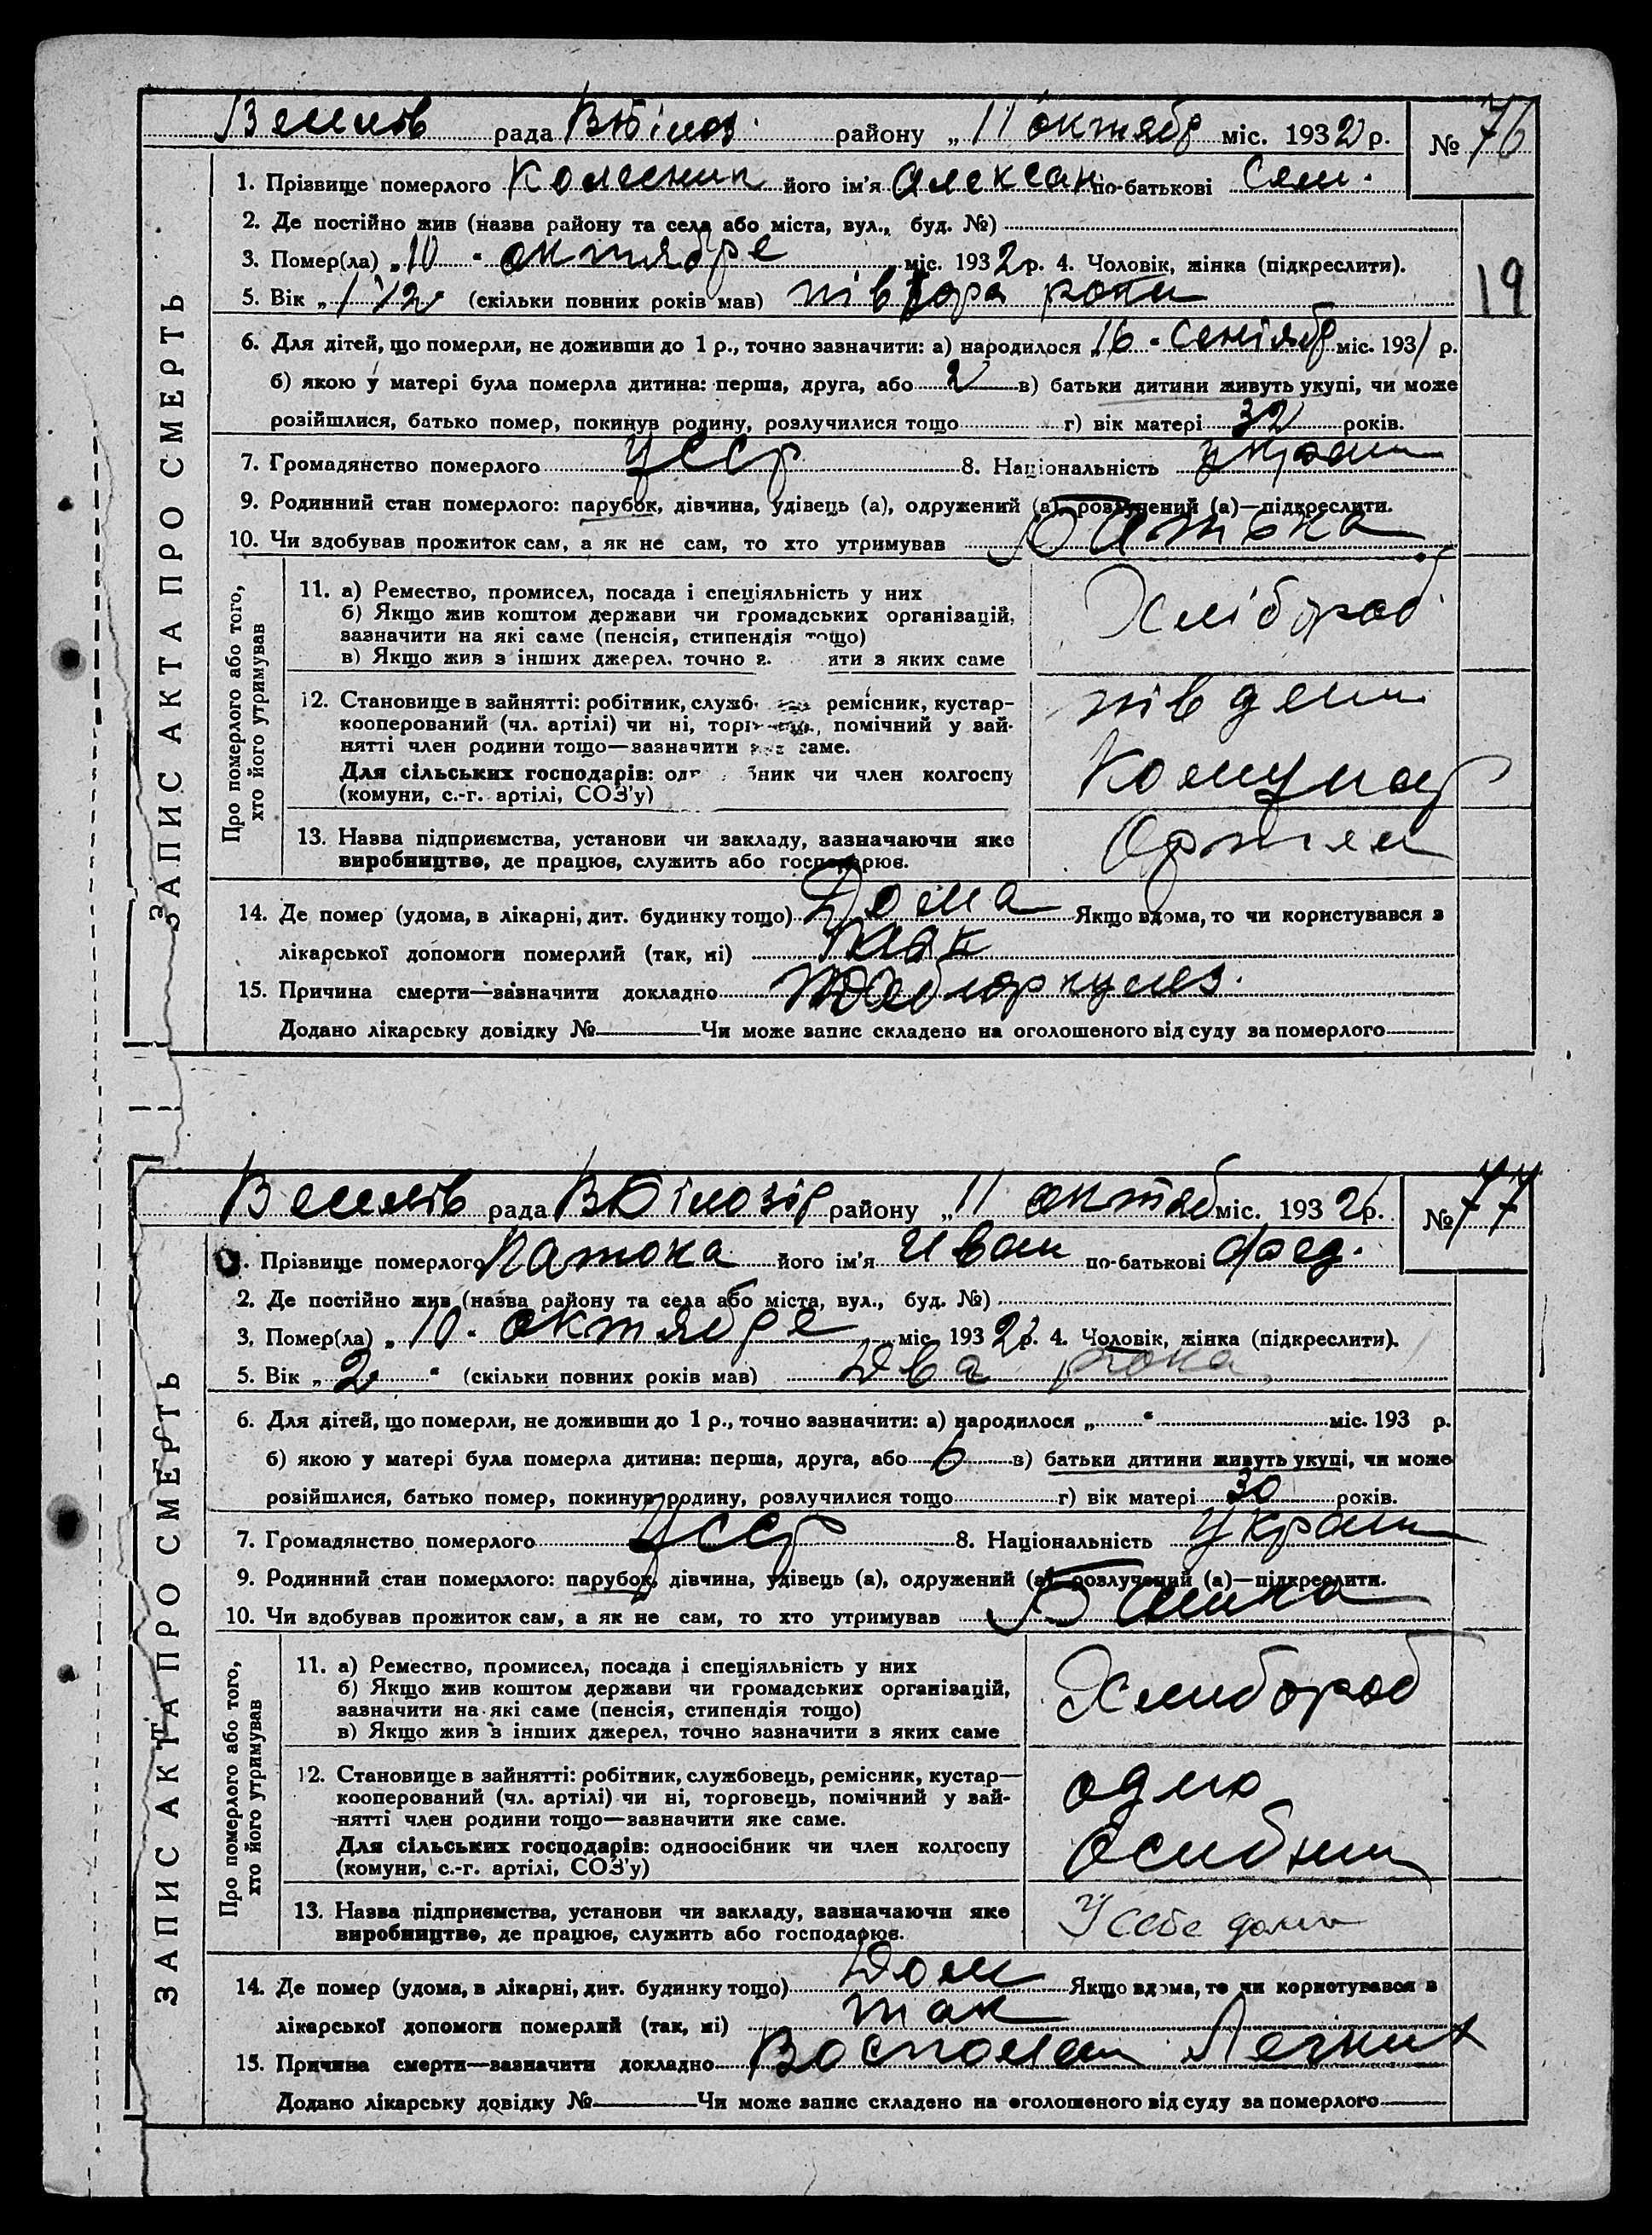 рада ВБілоз. району „11 октябр міс. 1932 р. № 76
ЗАПИС АКТА ПРО СМЕРТЬ
1. Прізвище померлого Колесник його ім'я Алексан по-батькові Сем.
2. Де постійно жив (назва району та села або міста, вул., буд. №)
3. Помер(ла) „10 " октябре міс. 1932 р. 4. Чоловік, жінка (підкреслити).
5. Вік „ 1 1/2 " (скільки повних років мав) півтора роки
19
6. Для дітей, що померли, не доживши до 1 р., точно зазначити: а) народилося „16 " сентiябр міс. 1931 р.
б) якою у матері була померла дитина: перша, друга, або 2 в) батьки дитини живуть укупі, чи може
розійшлися, батько помер, покинув родину, розлучилися тощо г) вік матері 32 років.
7. Громадянство померлого УССР 8. Національність украин
9. Родинний стан померлого: парубок, дівчина, удівець (а), одружений (а), розлучений (а)—підкреслити.
10. Чи здобував прожиток сам, а як не сам, то хто утримував Батька
Про померлого або того, хто його утримував
11. а) Ремество, промисел, посада і спеціяльність у них
б) Якщо жив коштом держави чи громадських організацій,
зазначити на які саме (пенсія, стипендія тощо)
в) Якщо жив з інших джерел, точно з ити з яких саме
Хлібороб
12. Становище в зайнятті: робітник, служб ремісник, кустар-
кооперований (чл. артілі) чи ні, торг , помічний у зай-
нятті член родини тощо—зазначити яке саме.
Для сільських господарів: од бник чи член колгоспу
(комуни, с.-г. артілі, СОЗ'у)
Комунар
13. Назва підприємства, установи чи закладу, зазначаючи яке
виробництво, де працює, служить або господарює.
14. Де помер (удома, в лікарні, дит. будинку тощо) Дома Якщо вдома, то чи користувався з
лікарської допомоги померлий (так, ні) так
15. Причина смерти—зазначити докладно
Додано лікарську довідку № Чи може запис складено на оголошеного від суду за померлого
рада ВБілозір району „11 октяб міс. 1932 р. № 77
ЗАПИС АКТА ПРО СМЕРТЬ
1. Прізвище померлого Патока його ім'я Иван по-батькові Фед.
2. Де постійно жив (назва району та села або міста, вул., буд. №)
3. Помер(ла) „10 " октябре міс. 1932 р. 4. Чоловік, жінка (підкреслити).
5. Вік „ 2 " (скільки повних років мав) Два рока
6. Для дітей, що померли, не доживши до 1 р., точно зазначити: а) народилося „ " міс. 193 р.
б) якою у матері була померла дитина: перша, друга, або 6 в) батьки дитини живуть укупі, чи може
розійшлися, батько помер, покинув родину, розлучилися тощо г) вік матері 30 років.
7. Громадянство померлого УССР 8. Національність Украин
9. Родинний стан померлого: парубок, дівчина, удівець (а), одружений (а), розлучений (а)—підкреслити.
10. Чи здобував прожиток сам, а як не сам, то хто утримував
Про померлого або того, хто його утримував
11. а) Ремество, промисел, посада і спеціяльність у них
б) Якщо жив коштом держави чи громадських організацій,
зазначити на які саме (пенсія, стипендія тощо)
в) Якщо жив з інших джерел, точно зазначити з яких саме
Хлибороб
12. Становище в зайнятті: робітник, службовець, ремісник, кустар—
кооперований (чл. артілі) чи ні, торговець, помічний у зай-
нятті член родини тощо—зазначити яке саме.
Для сільських господарів: одноосібник чи член колгоспу
(комуни, с.-г. артілі, СОЗ'у)
одно
осибник
13. Назва підприємства, установи чи закладу, зазначаючи яке
виробництво, де працює, служить або господарює.
У себе дома
14. Де помер (удома, в лікарні, дит. будинку тощо) Дом Якщо вдома, то чи користувався з
лікарської допомоги померлий (так, ні) так
15. Причина смерти—зазначити докладно Воспален Легких
Додано лікарську довідку № Чи може запис складено на оголошеного від суду за померлого